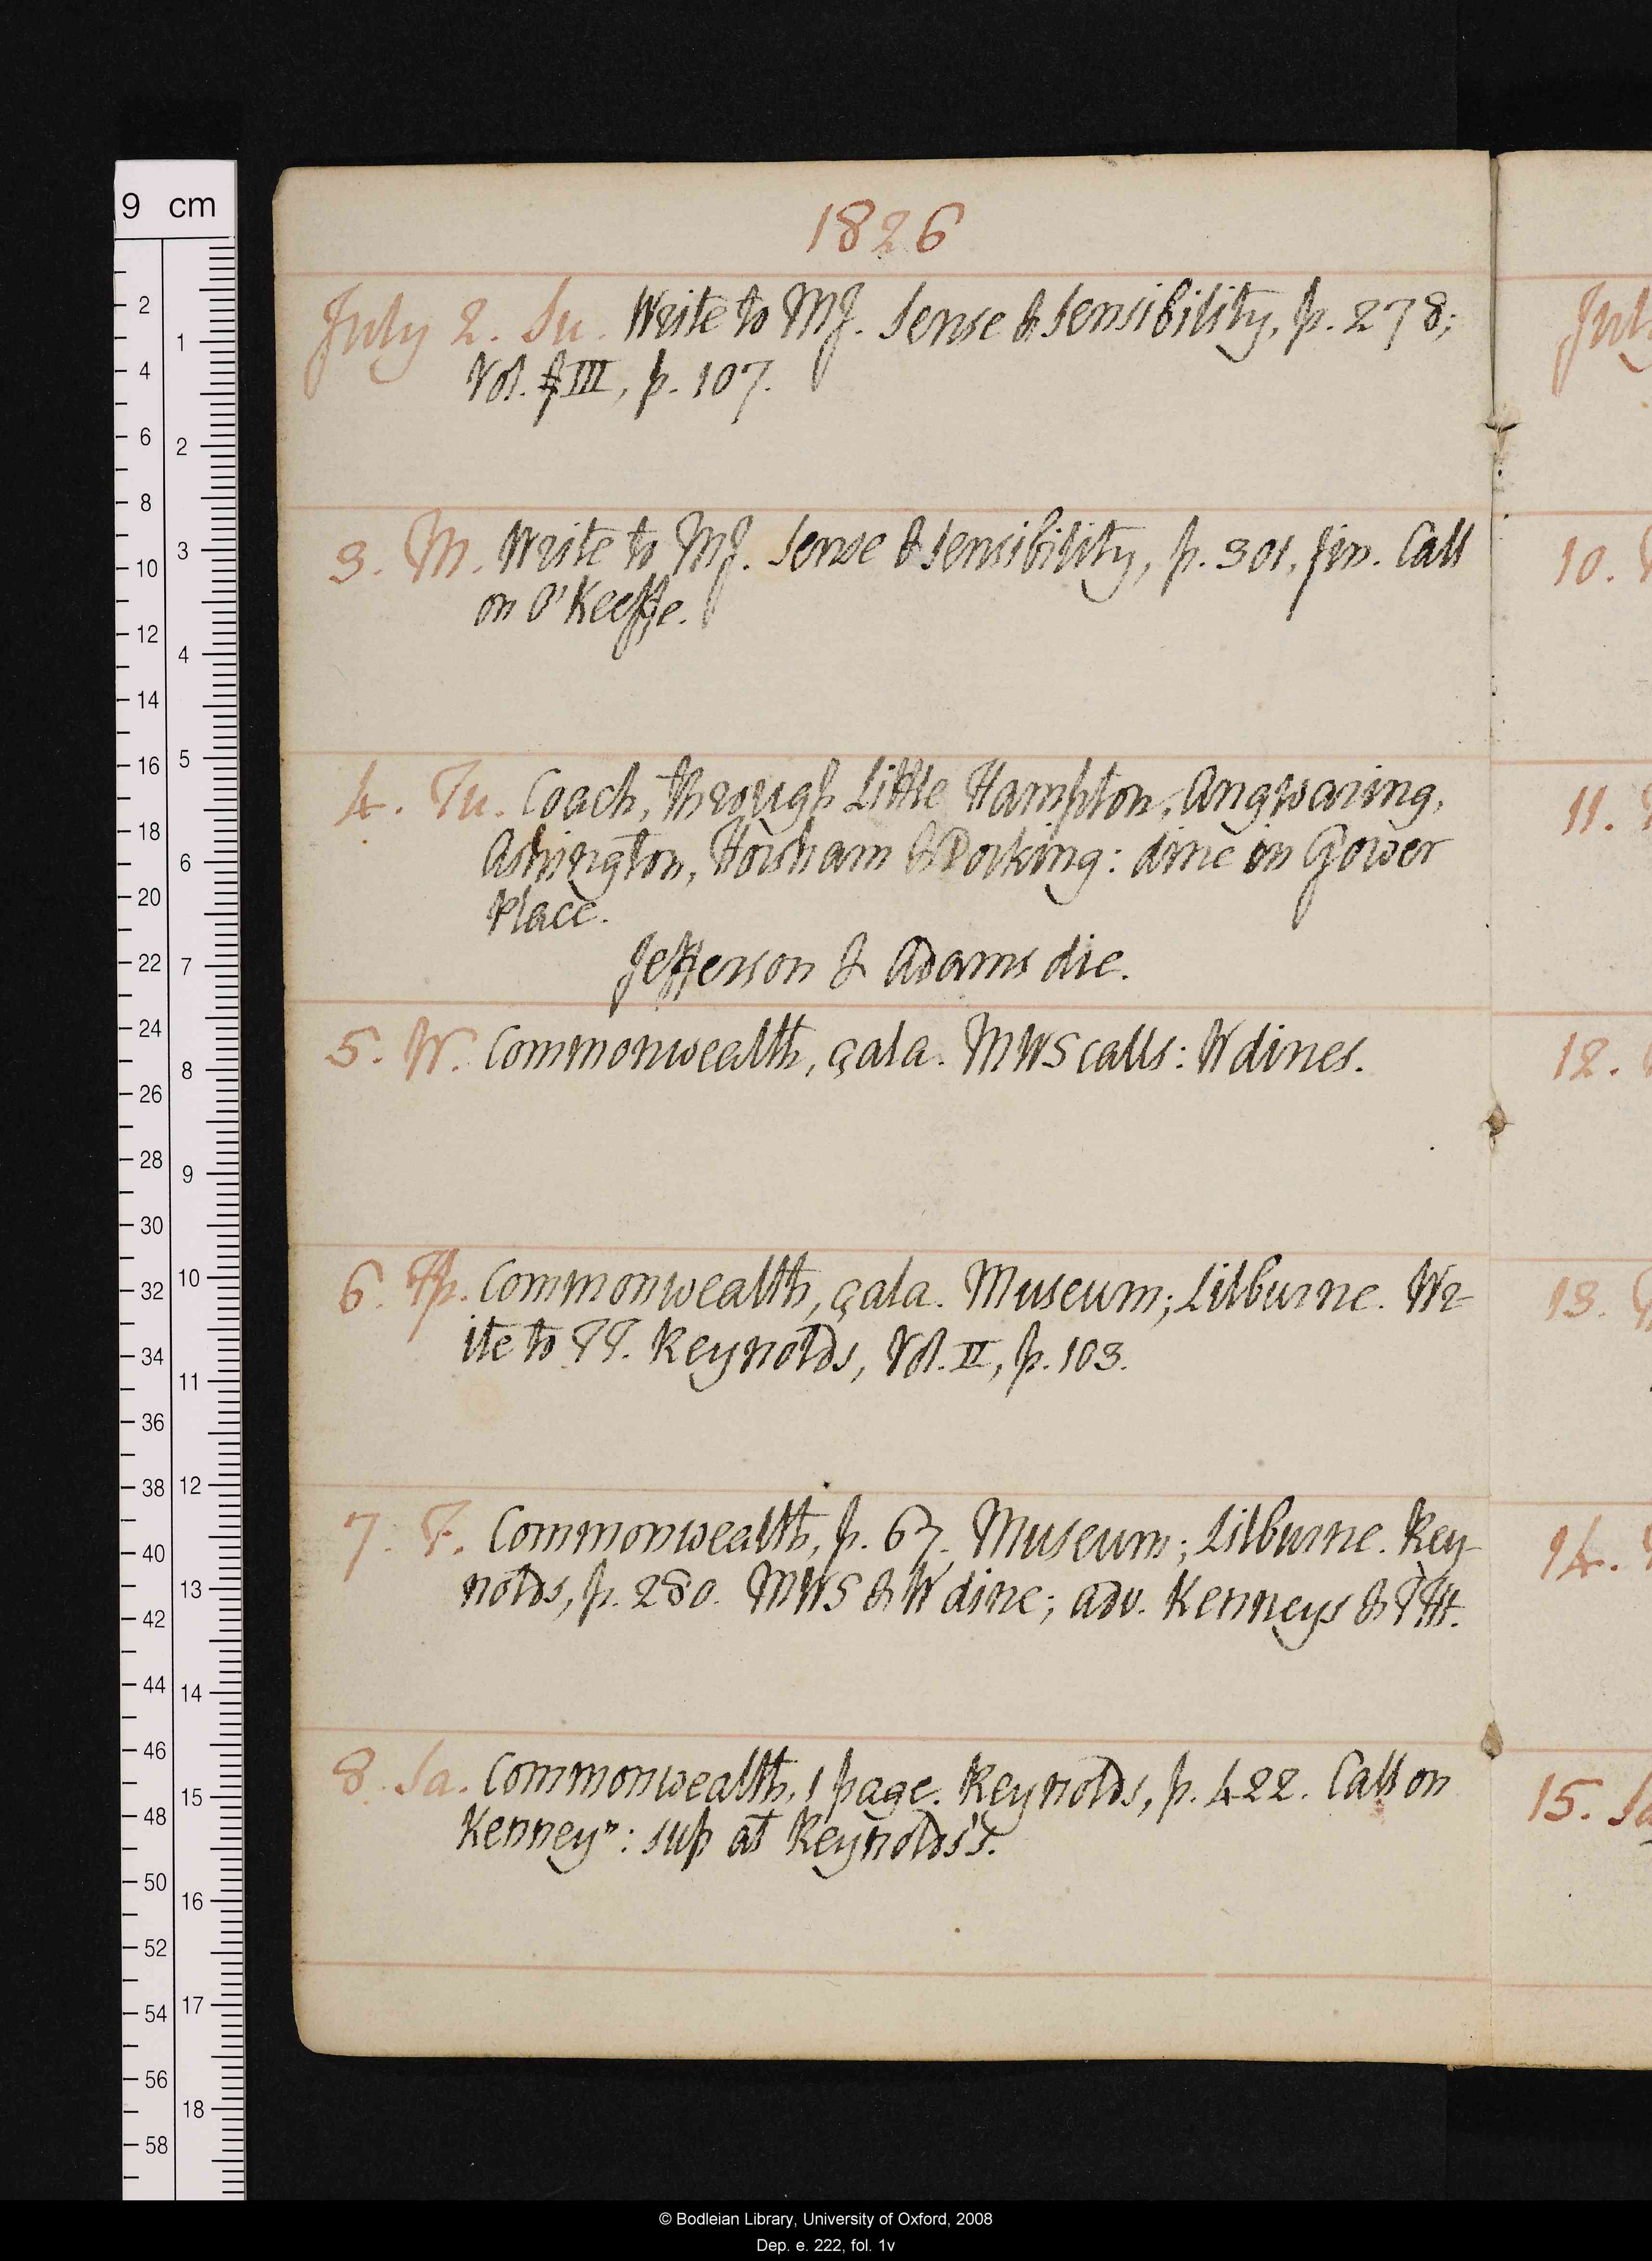 1826
July 2. Su. Write to MJ. Sense & Sensibility, p. 278;
Vol. III, p. 107.
3. M. Write to MJ. Sense & Sensibility, p. 301, fin. Call
on O'Keeffe.
4. Tu. Coach, through Little Hampton, Angwaring,
Ashington, Horsham & Dorking: dine in Gower
Place.
Jefferson & Adams die.
5. W. Commonwealth, çala. MWS calls: W dines.
6. Th. Commonwealth, çala. Museum; Lilburne. Wr-
ite to Reynolds, Vol. II, p. 103.
7. F. Commonwealth, p. 67. Museum; Lilburne. Rey-
nolds, p. 280. MWS & W dine; adv. Kenneys &
8. Sa. Commonwealth, 1 page. Reynolds, p. 422. Call on
Kenney": sup at Reynolds's.
July
10.
11.
12.
13.
14.
15. Sa
9 cm
2
4
6
8
10
12
14
16
18
20
22
24
26
28
30
32
34
36
38
40
42
44
46
48
50
52
54
56
58
1
2
3
4
5
6
7
8
9
10
11
12
13
14
15
16
17
18
© Bodleian Library, University of Oxford, 2008
Dep. e. 222, fol. 1v